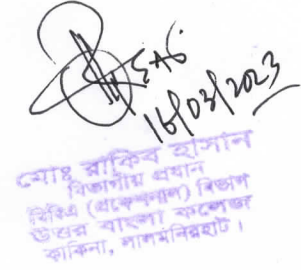 16/03/2023
মোঃ রাকিব হাসান
বিভাগীয় প্রধান
বিবিএ (প্রফেশনাল) বিভাগ
উত্তর বাংলা কলেজ
কাকিনা, লালমনিরহাট।